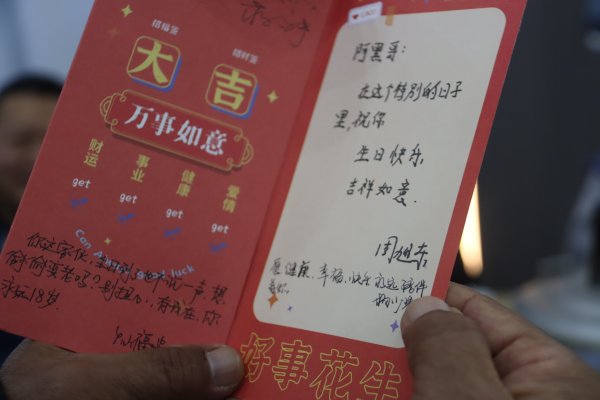 招福签
招祥签
大吉
万事如意
财运
事业
健康
爱情
get
get
get
get
good luck
你这家伙,生日到也不说一声,想
偷偷变老吗?别担心,有我在,你
永远18岁.
阿黑哥:
在这个特别的日子
里,祝你
生日快乐,
吉祥如意.
周旭东
愿健康、幸福、快乐永远陪伴
着你.
好事花生